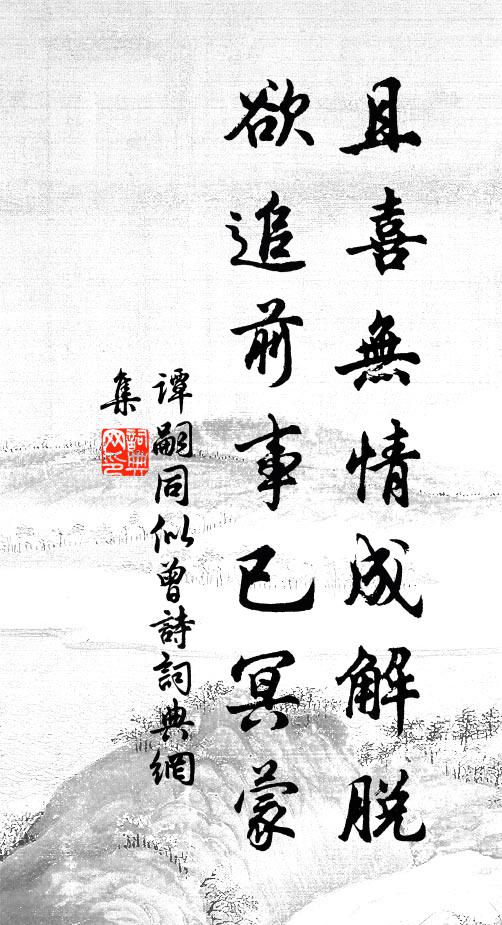 且喜無情成解脱
欲追前事已冥蒙
譚嗣同似曾詩詞典網
集
詞典網印